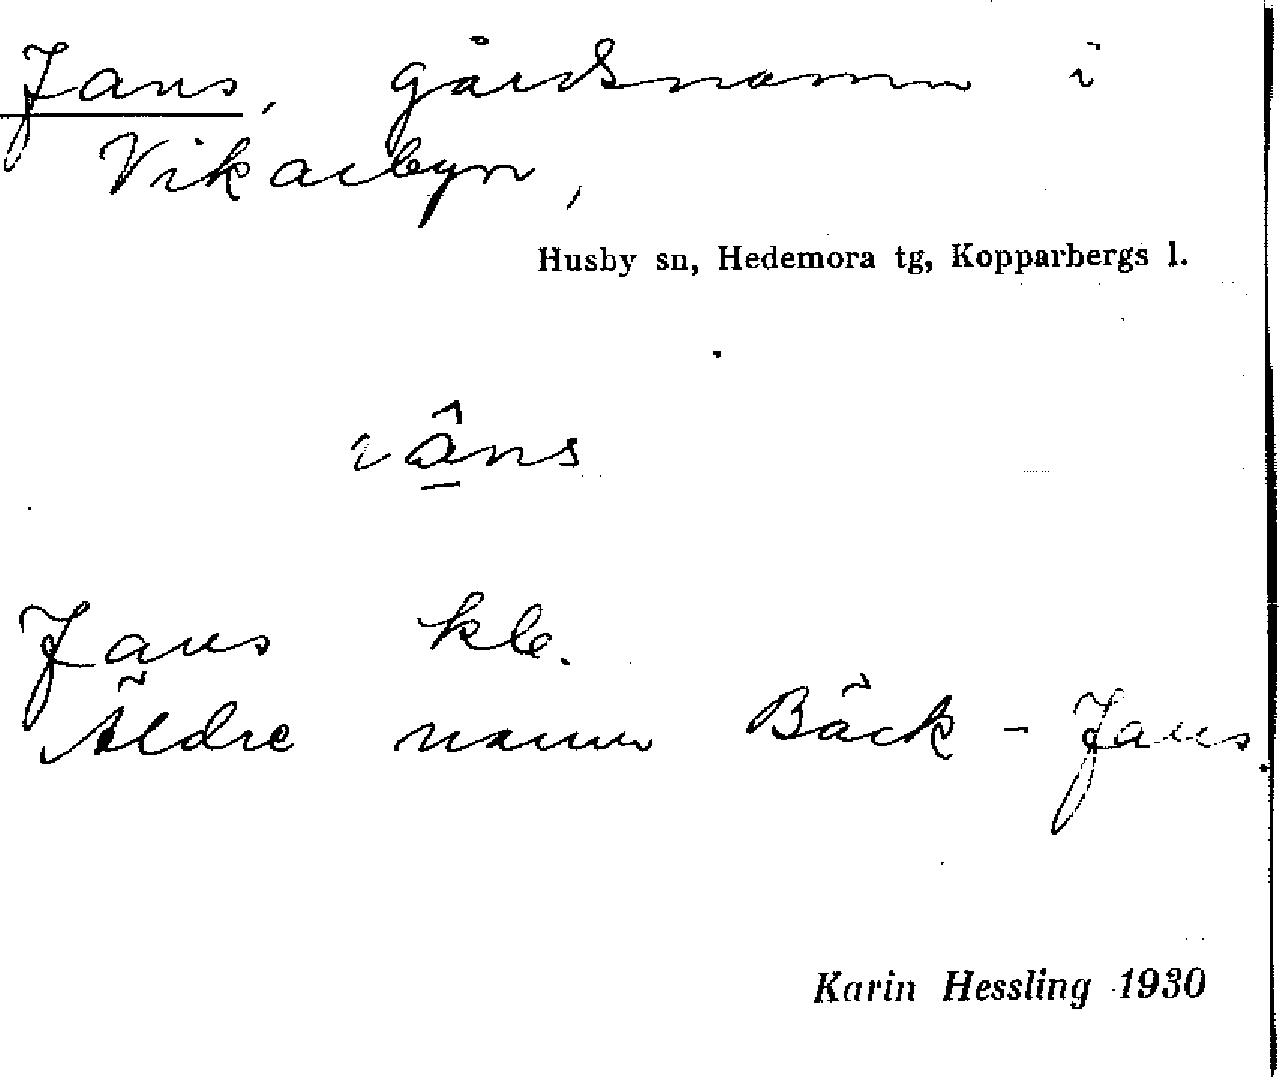 Jans, gårdsnamn i
Vikarbyn,
Husby sn, Hedemora tg, Kopparbergs l.
Jans kb.
Äldre namn Bäck - Jans.
Karin Hessling 1930